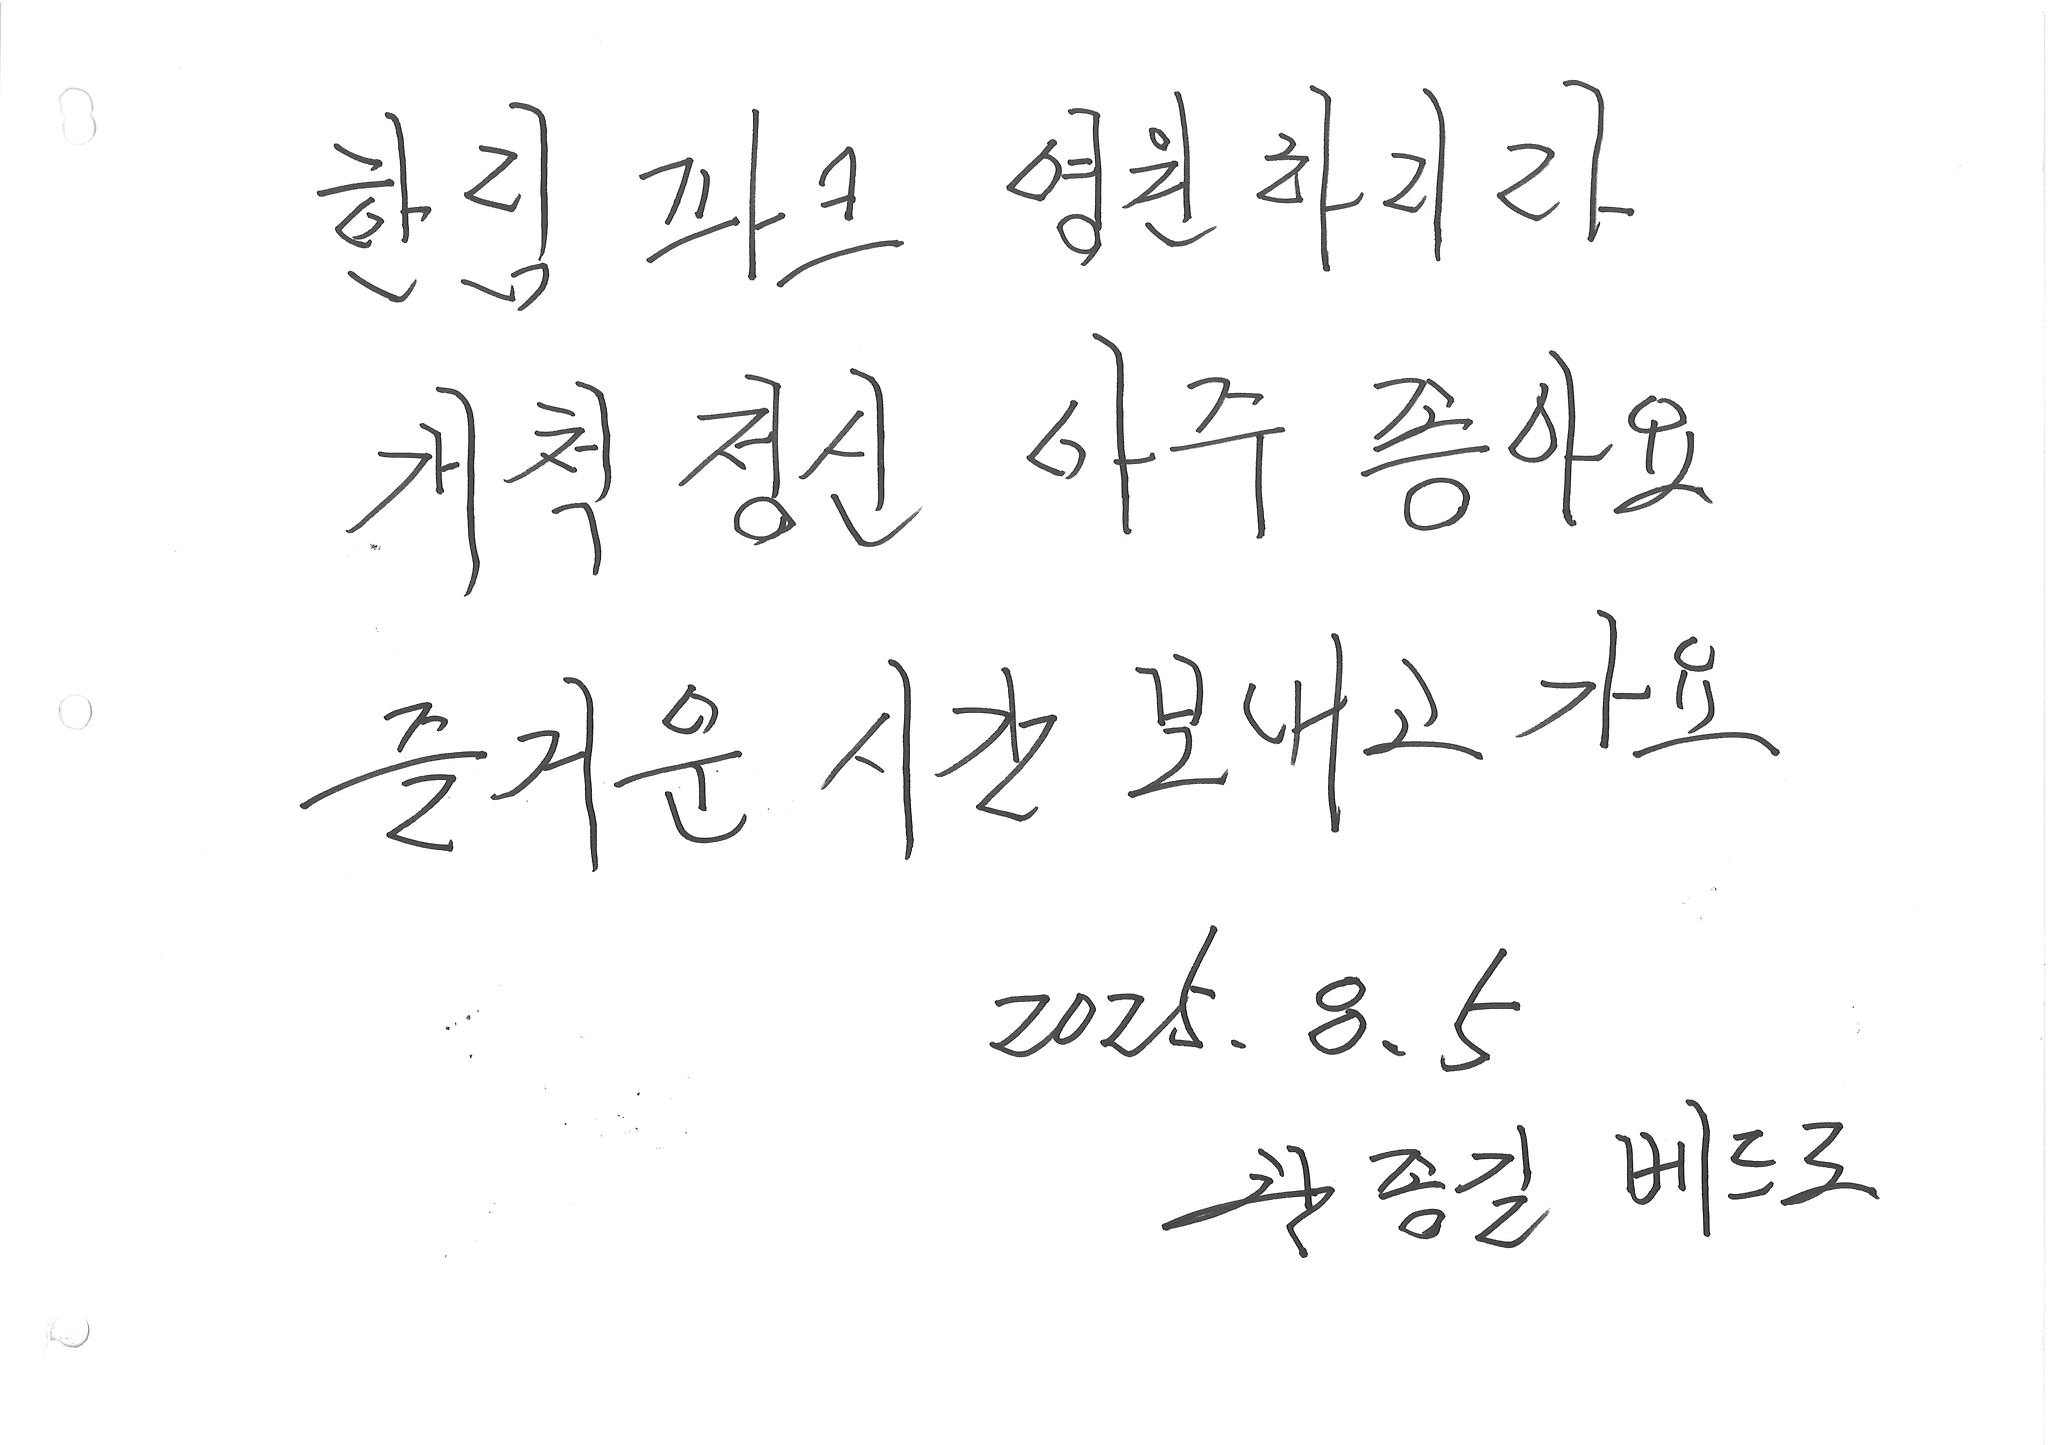 한림 파크 영원하리라
개척정신 아주 좋아요
즐거운 시간 보내고 가요
2025. 8. 5
종길 베드로